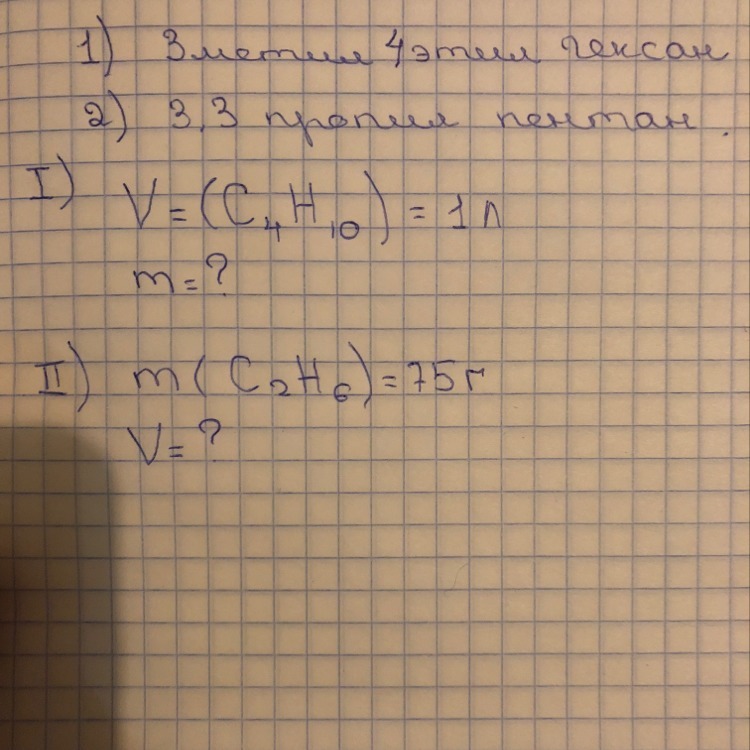 1) 3 метил 4 этил гексан
2) 3,3 пропил пентан.
I) V=(C₄H₁₀)=1л
m=?
II) m(C₂H₆)=75г
V=?